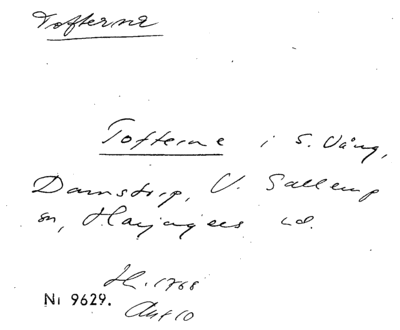 Tofterne
Tofterne i S. Vång,
Damstorp, V. Sallerup
sn, Harjagers hd.
H. 1768
Ni 9629.
Akt 10